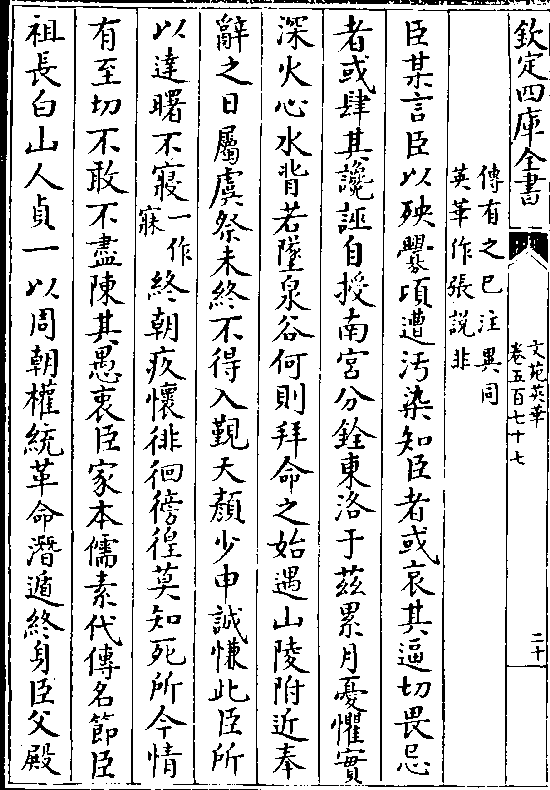 欽定四庫全書
文苑英華
卷五百七十七
二十
傳有之已注異同
英華作張說非
臣某言臣以殃釁頃遭汚染知臣者或哀其逼切畏忌
者或肆其讒誣自授南宮分銓東洛于茲累月憂懼實
深火心水背若墜泉谷何則拜命之始遇山陵附近奉
辭之日屬虞祭未終不得入覲天顏少申誠慊此臣所
以達曙不寢一作寐終朝疚懷徘徊徬徨莫知死所今情
有至切不敢不盡陳其愚衷臣家本儒素代傳名節臣
祖長白山人貞一以周朝權統革命潛遁終身臣父殿